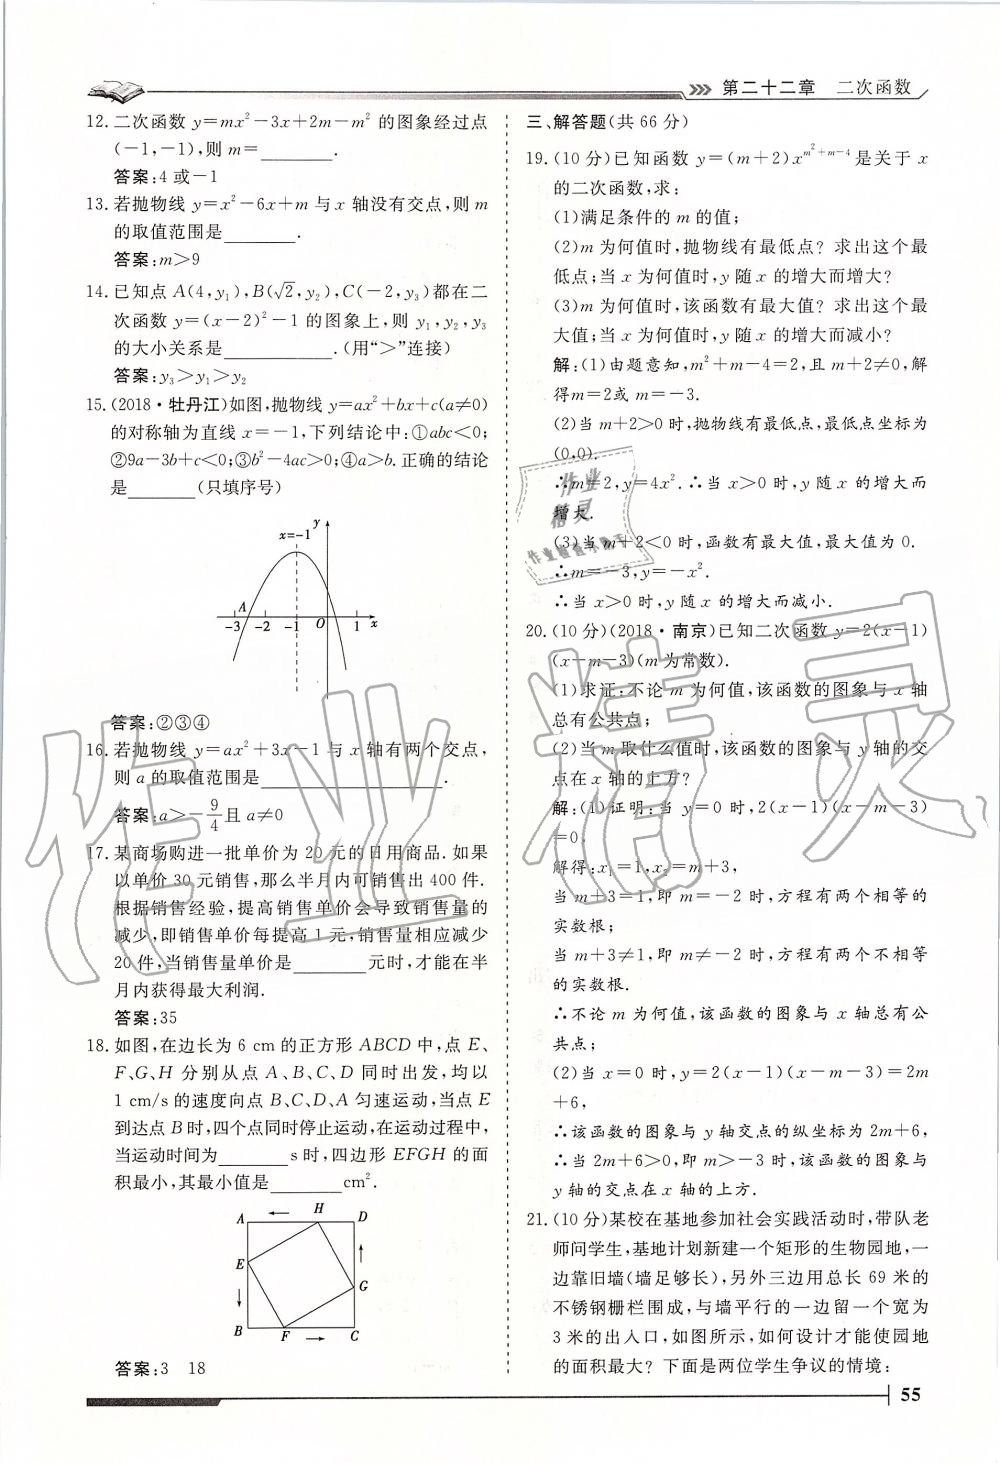 第二十二章　二次函数
12.二次函数 y=mx²-3x+2m-m² 的图象经过点
(-1,-1),则 m=________.
答案:4 或-1
13.若抛物线 y=x²-6x+m 与 x 轴没有交点,则 m
的取值范围是________.
答案:m>9
14.已知点 A(4,y₁),B(√2,y₂),C(-2,y₃)都在二
次函数 y=(x-2)²-1 的图象上,则 y₁,y₂,y₃
的大小关系是____________.(用“>”连接)
答案:y₃>y₁>y₂
15.(2018·牡丹江)如图,抛物线 y=ax²+bx+c(a≠0)
的对称轴为直线 x=-1,下列结论中:①abc<0;
②9a-3b+c<0;③b²-4ac>0;④a>b.正确的结论
是________(只填序号)
x=-1 y
A
-3 -2 -1 O 1 x
答案:②③④
16.若抛物线 y=ax²+3x-1 与 x 轴有两个交点,
则 a 的取值范围是____________________.
答案:a>-9/4且 a≠0
17.某商场购进一批单价为 20 元的日用商品.如果
以单价 30 元销售,那么半月内可销售出 400 件.
根据销售经验,提高销售单价会导致销售量的
减少,即销售单价每提高 1 元,销售量相应减少
20 件,当销售量单价是________元时,才能在半
月内获得最大利润.
答案:35
18.如图,在边长为 6 cm 的正方形 ABCD 中,点 E、
F、G、H 分别从点 A、B、C、D 同时出发,均以
1 cm/s 的速度向点 B、C、D、A 匀速运动,当点 E
到达点 B 时,四个点同时停止运动,在运动过程中,
当运动时间为________s 时,四边形 EFGH 的面
积最小,其最小值是________cm².
A H D
E
G
B F C
答案:3　18
三、解答题(共 66 分)
19.(10 分)已知函数 y=(m+2)x^(m²+m-4)是关于 x
的二次函数,求:
(1)满足条件的 m 的值;
(2)m 为何值时,抛物线有最低点? 求出这个最
低点;当 x 为何值时,y 随 x 的增大而增大?
(3)m 为何值时,该函数有最大值? 求出这个最
大值;当 x 为何值时,y 随 x 的增大而减小?
解:(1)由题意知,m²+m-4=2,且 m+2≠0,解
得m=2或 m=-3.
(2)当 m+2>0 时,抛物线有最低点,最低点坐标为
(0,0).
∴m=2,y=4x².∴当 x>0 时,y 随 x 的增大而
增大.
(3)当 m+2<0 时,函数有最大值,最大值为 0.
∴m=-3,y=-x².
∴当 x>0 时,y 随 x 的增大而减小.
20.(10 分)(2018·南京)已知二次函数 y=2(x-1)
(x-m-3)(m 为常数).
(1)求证:不论 m 为何值,该函数的图象与 x 轴
总有公共点;
(2)当 m 取什么值时,该函数的图象与 y 轴的交
点在 x 轴的上方?
解:(1)证明:当 y=0 时,2(x-1)(x-m-3)
=0.
解得:x₁=1,x₂=m+3,
当 m+3=1,即 m=-2 时,方程有两个相等的
实数根;
当 m+3≠1,即 m≠-2 时,方程有两个不相等
的实数根.
∴不论 m 为何值,该函数的图象与 x 轴总有公
共点;
(2)当 x=0 时,y=2(x-1)(x-m-3)=2m
+6,
∴该函数的图象与 y 轴交点的纵坐标为 2m+6,
∴当 2m+6>0,即 m>-3 时,该函数的图象与
y 轴的交点在 x 轴的上方.
21.(10 分)某校在基地参加社会实践活动时,带队老
师问学生,基地计划新建一个矩形的生物园地,一
边靠旧墙(墙足够长),另外三边用总长 69 米的
不锈钢栅栏围成,与墙平行的一边留一个宽为
3 米的出入口,如图所示,如何设计才能使园地
的面积最大? 下面是两位学生争议的情境:
55
作业精灵
作业
精灵